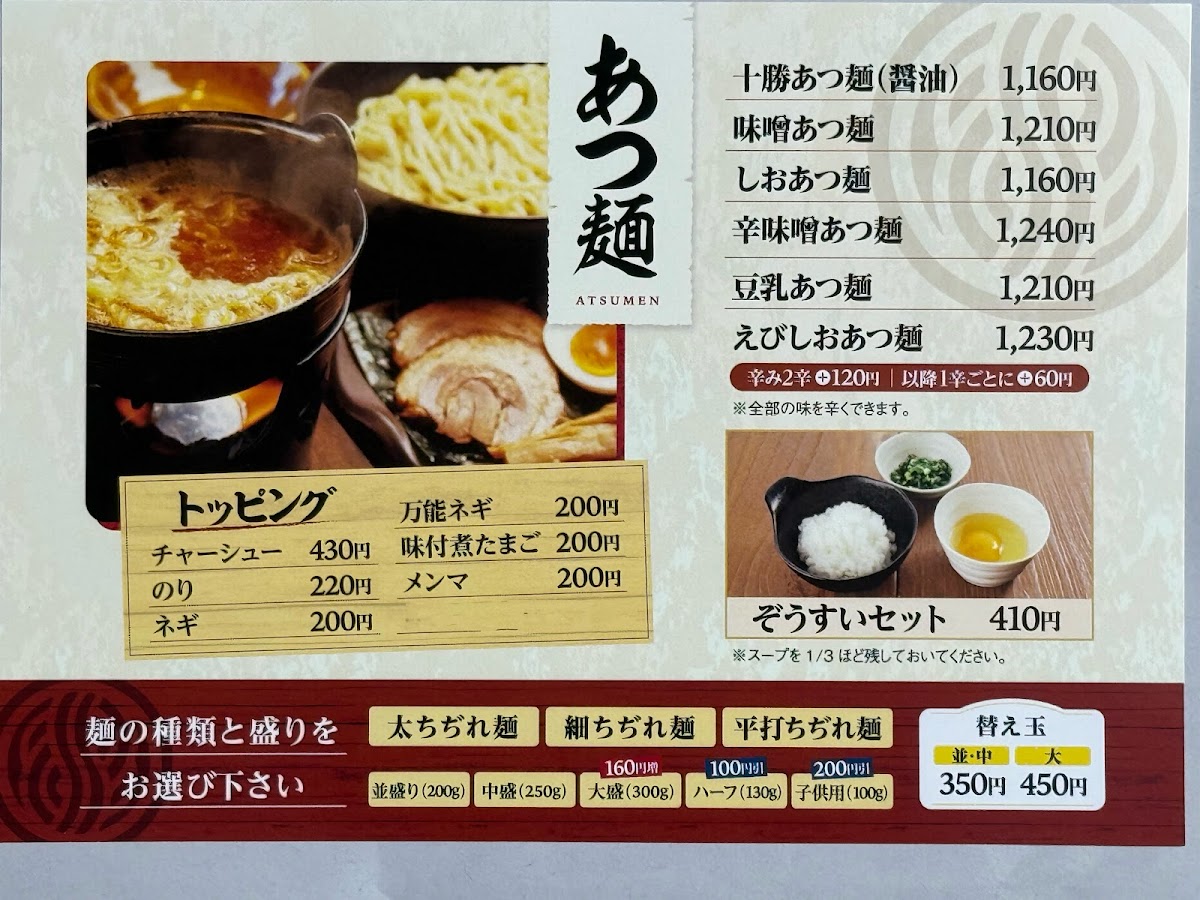 あつ麺
ATSUMEN
十勝あつ麺(醤油) 1,160円
味噌あつ麺 1,210円
しおあつ麺 1,160円
辛味噌あつ麺 1,240円
豆乳あつ麺 1,210円
えびしおあつ麺 1,230円
辛み2辛+120円 | 以降1辛ごとに+60円
※全部の味を辛くできます。
トッピング
チャーシュー 430円
のり 220円
ネギ 200円
万能ネギ 200円
味付煮たまご 200円
メンマ 200円
ぞうすいセット 410円
※スープを1/3ほど残しておいてください。
麺の種類と盛りを
お選び下さい
太ちぢれ麺 細ちぢれ麺 平打ちぢれ麺
160円増 100円引 200円引
並盛り(200g) 中盛(250g) 大盛(300g) ハーフ(130g) 子供用(100g)
替え玉
並・中 大
350円 450円